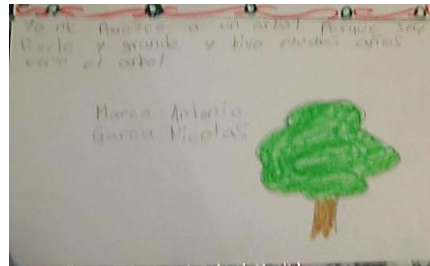 Yo me Paresco a un arbol Porque soy
fuerte y grande y bivo muchos años
como el arbol
Marco Antonio
Garcia Nicolas